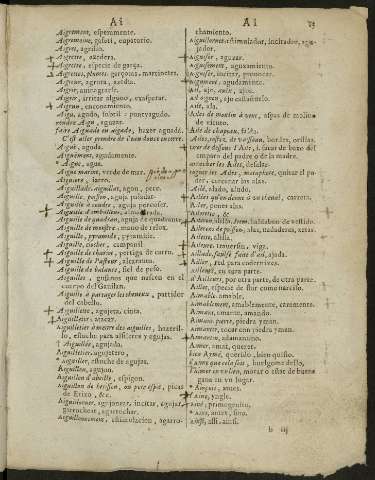 Ai
Ai
Aigrement, esperamente.
Aigremoine, gafeti, eupatorio.
Aigret, agrillo.
Aigrette, azedera.
Aigrette, especie de garça.
Aigrettes, plumes, garçotas, martinetes.
Aigreur, agrura, azedia.
Aigrir, enuinagrarse.
Aigrir, irritar alguno, exasperar.
Aigreur, enconamiento.
Aigu, agudo, sotil, puntyagudo.
rendre Aigu, aguzar.
faire Aiguade ou aygade, hazer aguada.
C'est aller prendre de l'eau douce en terre.
Aiguë, aguda.
Aiguëment, agudamente.
Aigue, agua.
Aigue marine, verde de mar.
Aiguiere, jarro.
Aiguillade, aiguillat, agon, pece.
Aiguille, poisson, aguja paladar.
Aiguille à coudre, aguja percoser.
Aiguille à emballeur, almarada.
Aiguille de quadran, aguja de quadrante.
Aiguille de monstre, mano de relox.
Aiguille, pyramide, pyramide.
Aiguille, clocher, campanil.
Aiguille de chariot, pertiga de carro.
Aiguille de Pasteur, algebena.
Aiguille de balance, fiel de peso.
Aiguilles, gusanos que nascen en el
cuerpo del Gauilan.
Aiguille à partager les cheueux, partidor
del cabello.
Aiguillette, agujeta, cinta.
Aiguilleter, atacar.
Aiguilletier à mettre des aiguilles, hazerillo,
estuche para alfileres y agujas.
Aiguillée, agujada.
Aiguilletier, agujetero.
aiguillier, estuche de agujas.
Aiguillon, aguijon.
Aiguillon d'abeille, espigon.
Aiguillon de herisson, ou porc espic, picas
de Erizo, &c.
Aiguillonner, aguijonear, incitar, agujar,
garrochear, agarrochar.
Aiguillonnement, estimulacion, agarro-
chamiento.
Aiguillonneur, stimulador, incitador, aguijador.
Aiguiser, aguzar.
Aiguisement, aguzamiento.
Aiguiser, incitar, prouocar.
Aigument, agudamente.
Ail, ajo, auix, ajos.
ail oignon, ajo castañuelo.
Aile, ala.
Ailes de moulin à vent, aspas de molino
de viento.
Aile de chapeau, falda.
Ailes, costez, de vaisseau, bordes, orillas.
tirer de dessous l'Aile, i. sacar de bozo del
amparo del padre o de la madre.
arracher les Ailes, desalar.
rogner les Ailes, metaphore, quitar el poder,
cercenar las alas.
Ailé, alado, aludo.
Ailes qu'on donne à vn chenal, carrera.
Ailer, poner alas.
Ailerette, &c.
Ailleron, aisselle, ..., haldabon de vestido.
Ailerons de poisson, alas, nadaderas, aletas.
Aileron, alilla.
Aileure, trauersin, viga.
Aillade, saulse faite d'ail, ajada.
Ailler, red para codornices.
ailleurs, en otra parte.
d'Ailleurs, por otra parte, de otra parte.
Ailier, especie de flor como narciso.
Aimable, amable.
Aimablement, amablemente, caramente.
Aimant, amante, amando.
Aimant pierre, piedra yman.
Aimanter, tocar con piedra yman.
Aimantin, adamantino.
Aimer, amar, querer.
bien Aymé, querido, bien quisto.
i'Aime que cela soit, huelgome dello.
l'Aimer en vn lieu, morar o estar de buena
gana en vn lugar.
Ainçois, antes.
Aine, yngle.
Aisné, primogenito.
Ains, antes, sino.
ainsi, assi, ansi.
b iij